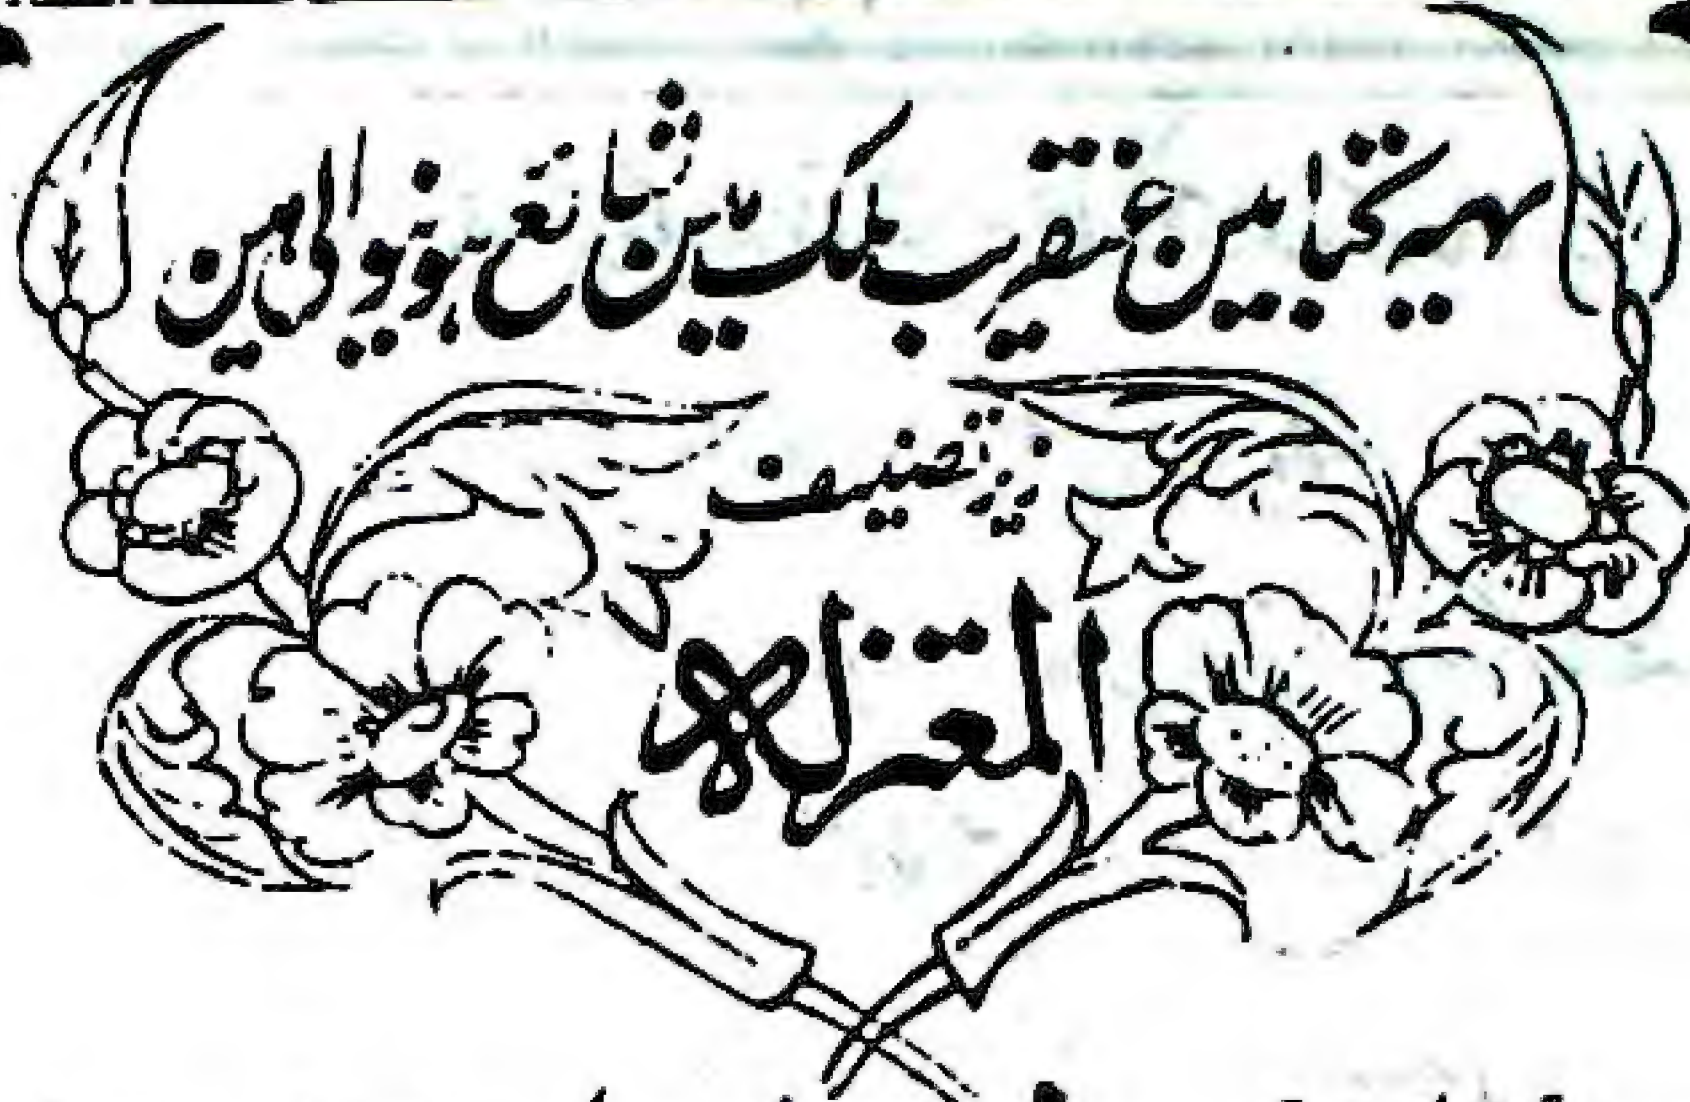 یہ کتابیں عنقریب ملک میں شائع ہونیوالی ہیں
زیر تصنیف
المعتزلہ